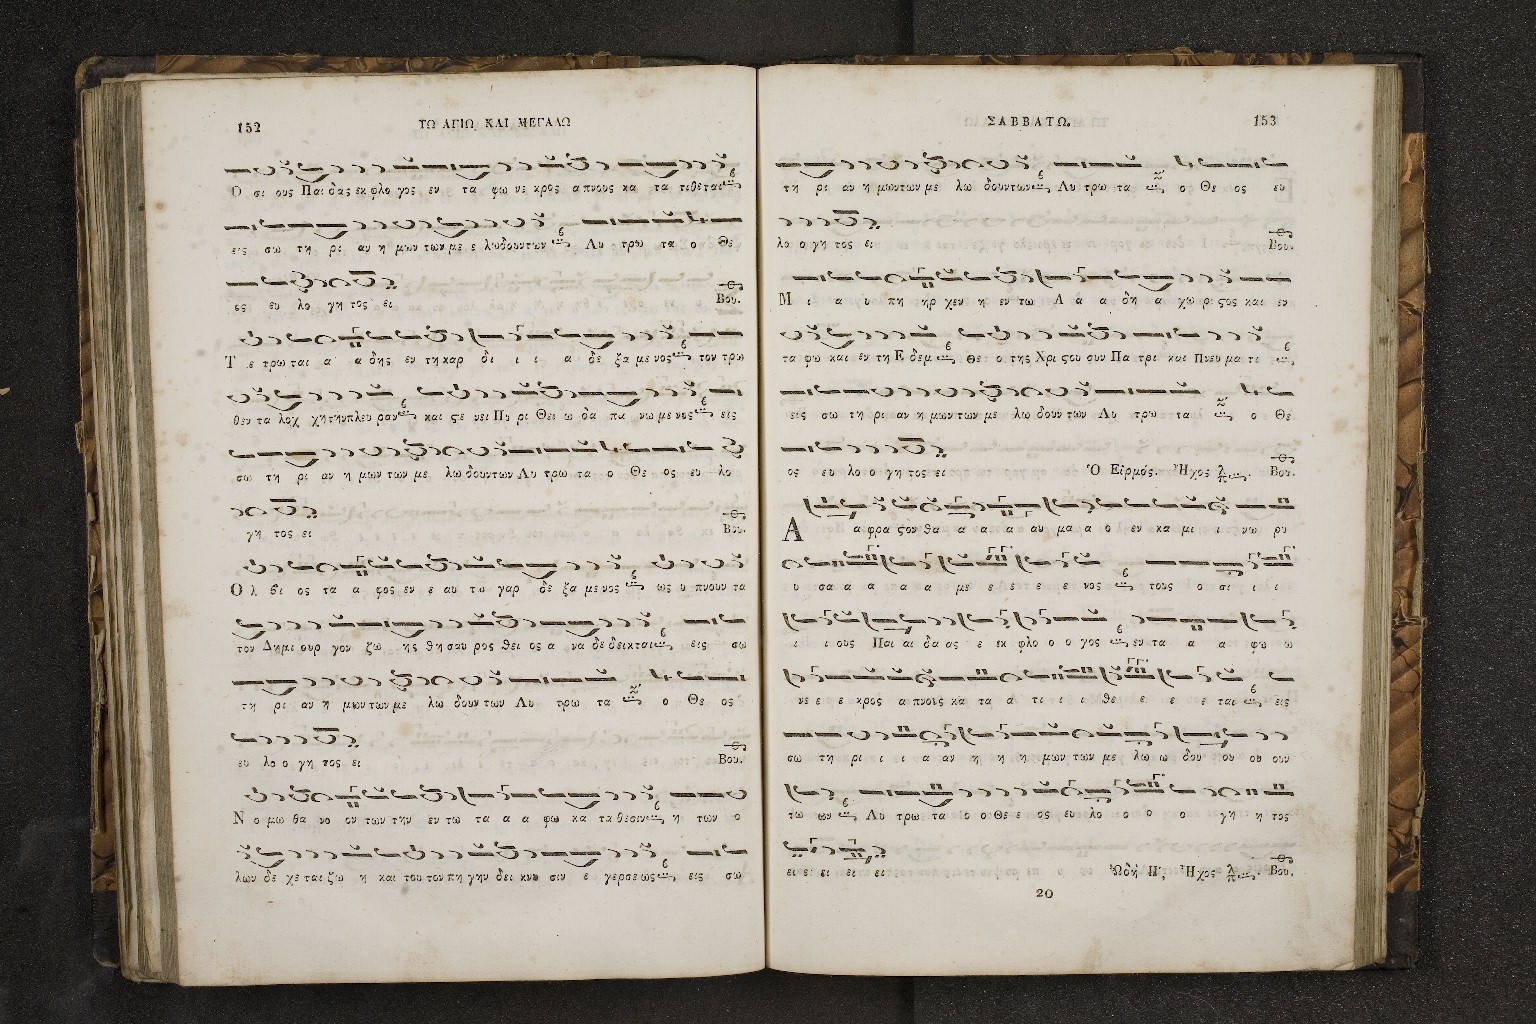 152
ΤΩ ΑΓΙΩ ΚΑΙ ΜΕΓΑΛΩ
Ο σι ους Παι δας εκ φλο γος εν τα φω νε κρος α πνους κα τα τιθεται
εις σω τη ρι αν η μων των με ε λωδουντων Λυ τρω τα ο Θε
ος ευ λο γη τος ει Βου.
Τ ε τρω ται α α δης εν τη καρ δι ι ι α δε ξα με νος τον τρω
θεν τα λοχ χη την πλευ ραν και ϛε νει Πυ ρι Θει ω δα πα νω με νος εις
σω τη ρι αν η μων των με λω δουντων Λυ τρω τα ο Θε ος ευ λο
γη τος ει Βου.
Ο λ βι ος τα α φος εν ε αυ τω γαρ δε ξα με νος ως υ πνουν τα
τον Δημι ουρ γον ζω ης θη σαυ ρος θει ος α να δε δεικται εις σω
τη ρι αν η μων των με λω δουν των Λυ τρω τα ο Θε ος
ευ λο ο γη τος ει Βου.
Ν ο μω θα νο ον των την εν τω τα α α φω κα τα θεσιν η των ο
λων δε χε ται ζω η και του τον πη γην δει κνυ σιν ε γερσε ως εις σω
ΣΑΒΒΑΤΩ.
153
τη ρι αν η μωντων με λω δουντων Λυ τρω τα ο Θε ος ευ
λο ο γη τος ει Βου.
Μ ι α υ πη ηρ χεν η εν τω Α α α δη α χω ρι ϛος και εν
τα φω και εν τη Ε δεμ Θε ο της Χρι ϛου συν Πα τρι και Πνευ μα τι
εις σω τη ρι αν η μων των με λω δουν των Λυ τρω τα ο Θε
ος ευ λο ο γη τος ει Ὁ Εἱρμός. Ἦχος Βου.
Α α φρα ϛον θα α α α αυ μα α ο εν κα μι ι νω ρυ
υ σα α α α α με ε ε ε ε νος τους ο σι ι ι
ι ι ους Παι αι δα ας ε εκ φλο ο ο γος εν τα α α φω ω
νε ε ε κρος α πνους κα τα α τι ι ι θε ε ε ε ται εις
σω τη ρι ι ι α αν η η η μων των με λω ω δου ου ου ουν
τω ων Λυ τρω τα ο ο Θε ε ος ευ λο ο ο ο γη η τος
ει ει ει ει ει Ὠδὴ Η', Ἦχος Βου.
20